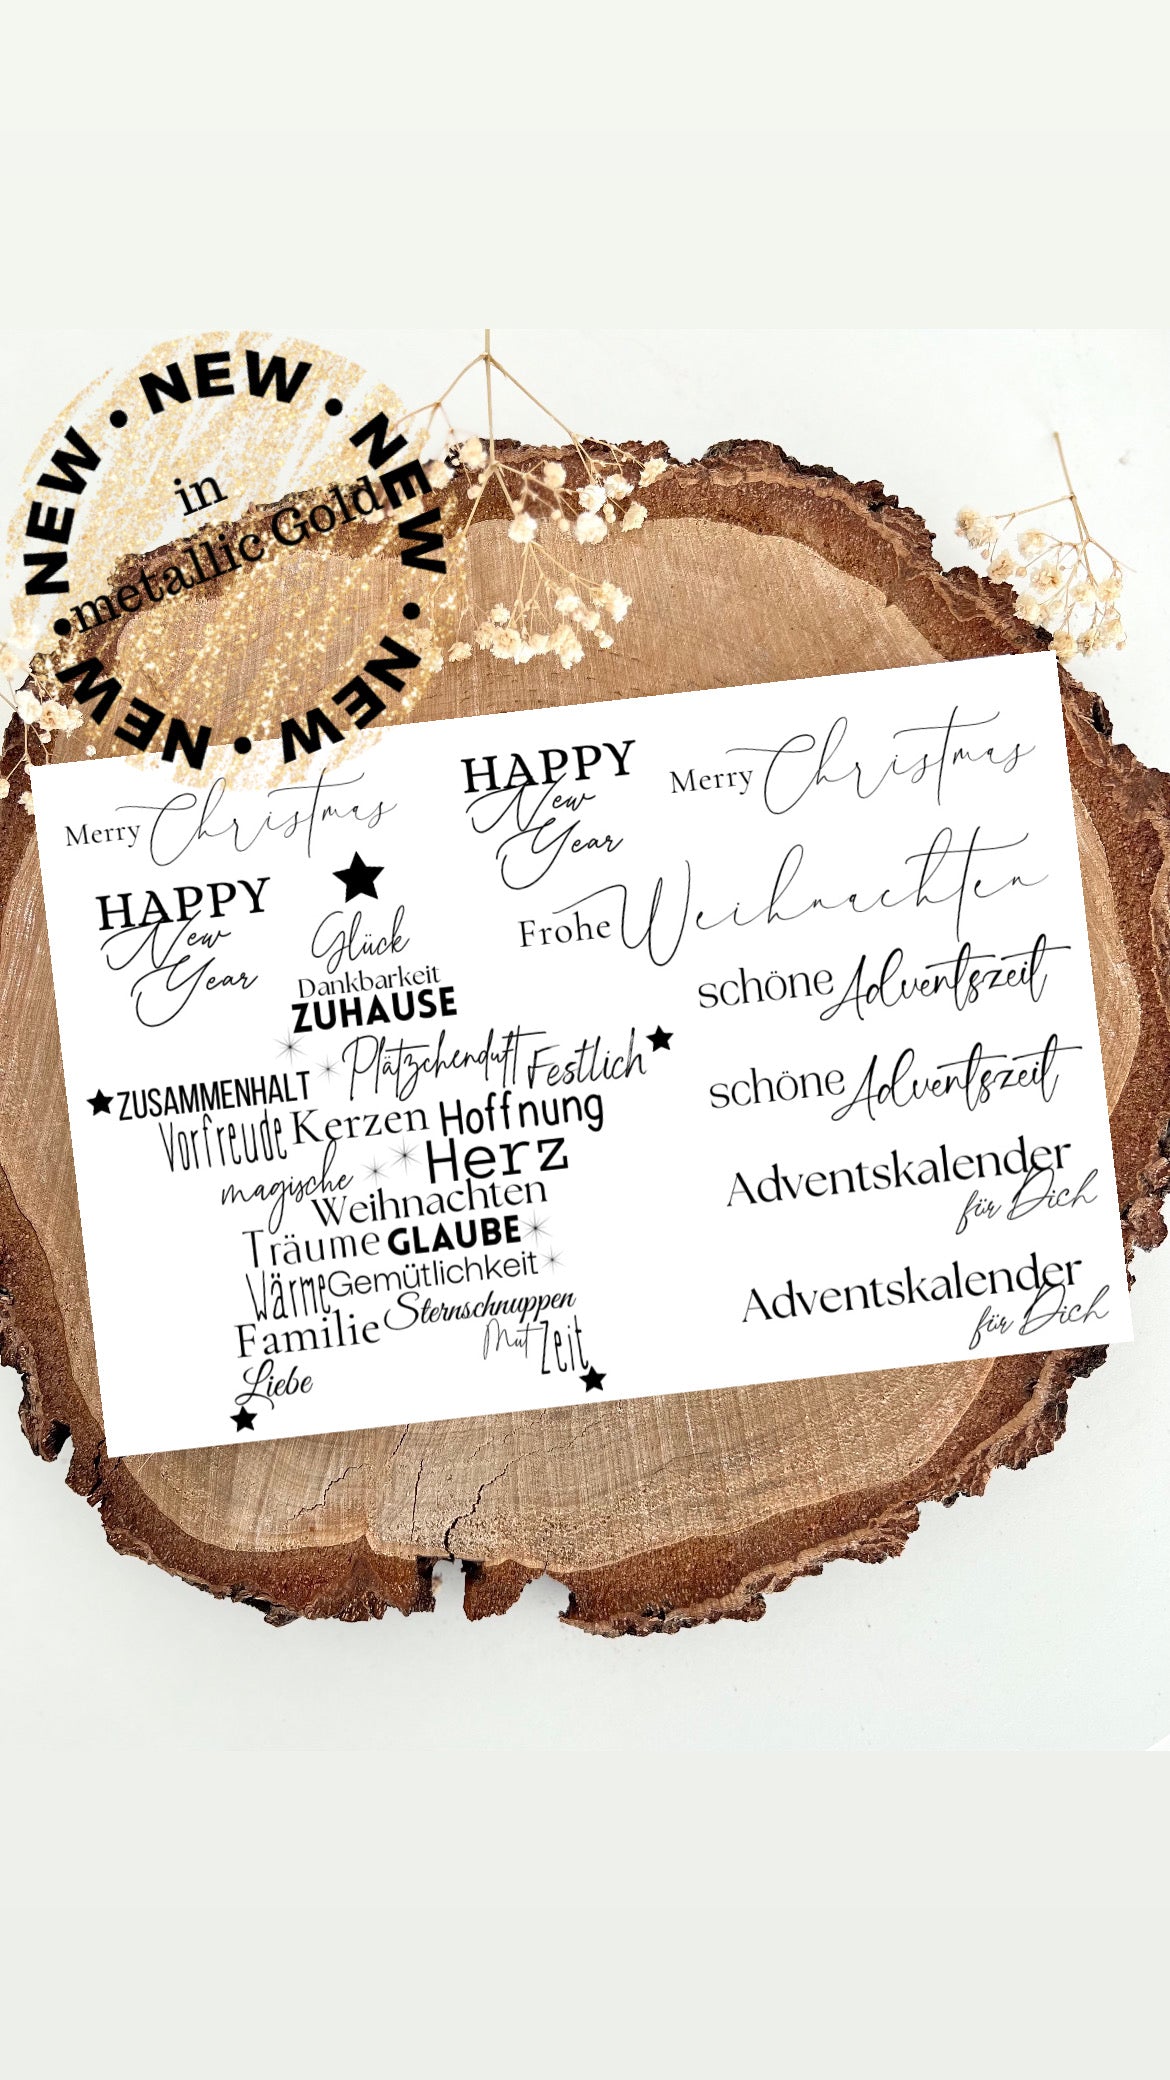 NEW • NEW • NEW • NEW • NEW •
in
metallic Gold
Merry Christmas
HAPPY
New
Year
Glück
Dankbarkeit
ZUHAUSE
Plätzchenduft Festlich
ZUSAMMENHALT
Vorfreude Kerzen Hoffnung
magische Herz
Weihnachten
Träume GLAUBE
Wärme Gemütlichkeit
Familie Sternschnuppen
Mut Zeit
Liebe
HAPPY
New
Year
Merry Christmas
Frohe Weihnachten
schöne Adventszeit
schöne Adventszeit
Adventskalender
für Dich
Adventskalender
für Dich